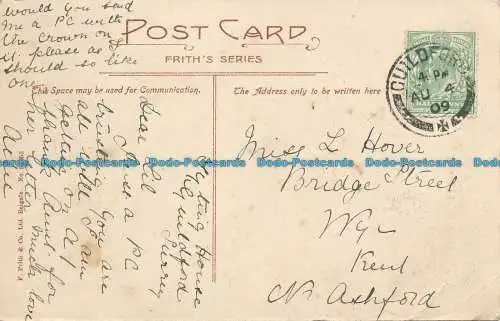 would you send
me a PC with
the Crown on
it please as I
should so like
one.
POST CARD
FRITH'S SERIES
This Space may be used for Communication.
The Address only to be written here
GUILDFORD
4. PM
AU 4
09
House
Guildford
Surrey
Dear Lil
Just a PC
trusting you are
all well. I am
thank Aunt for
her letter much love
Miss L Hover
Bridge Street
Wye
Kent
Nr. Ashford
Dodo-Postcards.com Dodo-Postcards.com Dodo-Postcards.com Dodo-Postcards.com